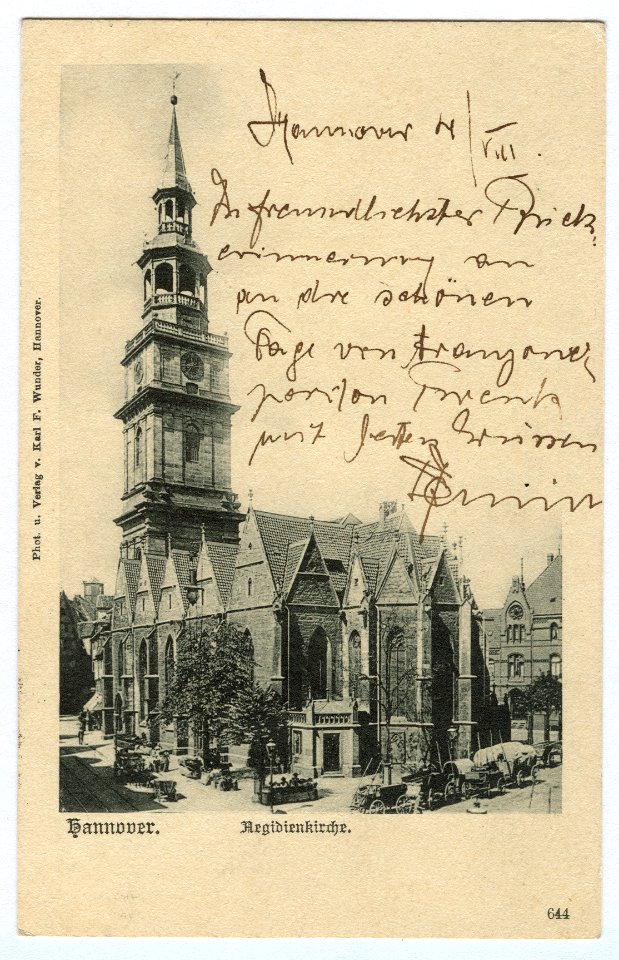 Hannover 4/VIII.
In freundlichster Rück-
erinnerung an
an die schönen
Tage von
mit besten Grüssen
Armin
Phot. u. Verlag v. Karl F. Wunder, Hannover.
Hannover. Aegidienkirche.
644